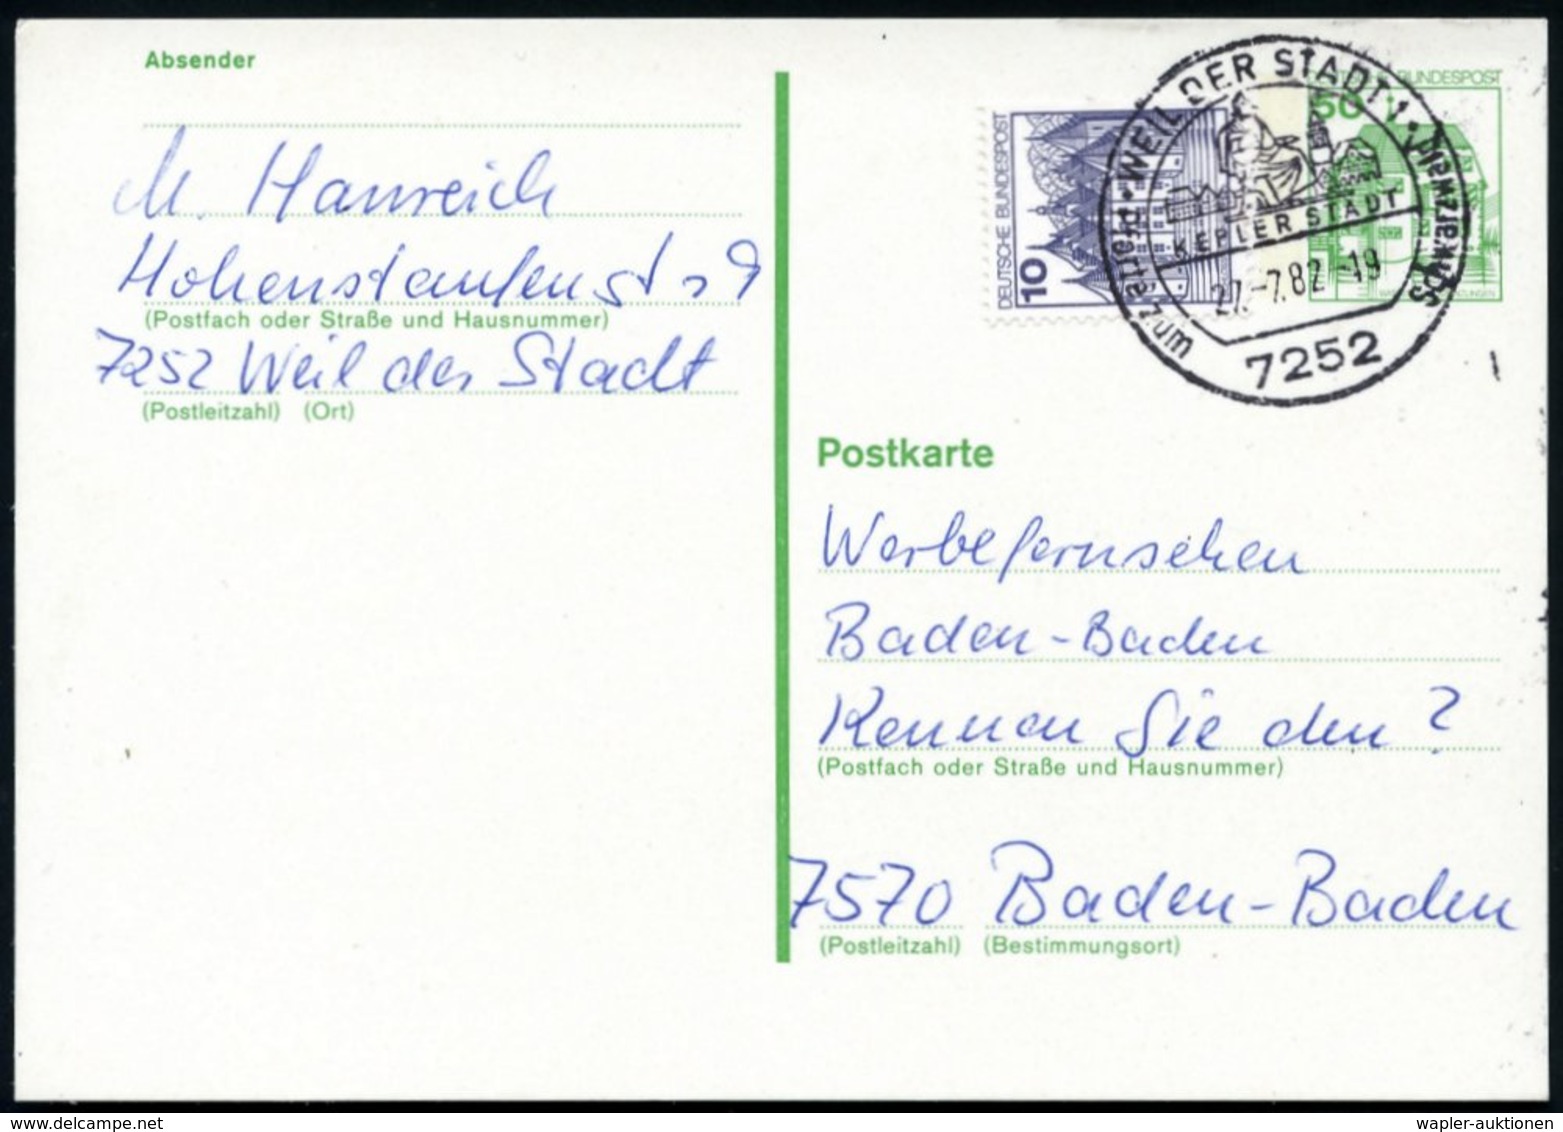 Absender
M. Hanreich
Hohenstaufenstr 9
(Postfach oder Straße und Hausnummer)
7252 Weil der Stadt
(Postleitzahl) (Ort)
DEUTSCHE BUNDESPOST
10
BUNDESPOST
50
WEIL DER STADT 1
Pforte zum Schwarzwald
KEPLERSTADT
27.-7.82-19
7252
Postkarte
Werbefernsehen
Baden-Baden
Kennen Sie den?
(Postfach oder Straße und Hausnummer)
7570 Baden-Baden
(Postleitzahl) (Bestimmungsort)
wapler-auktionen